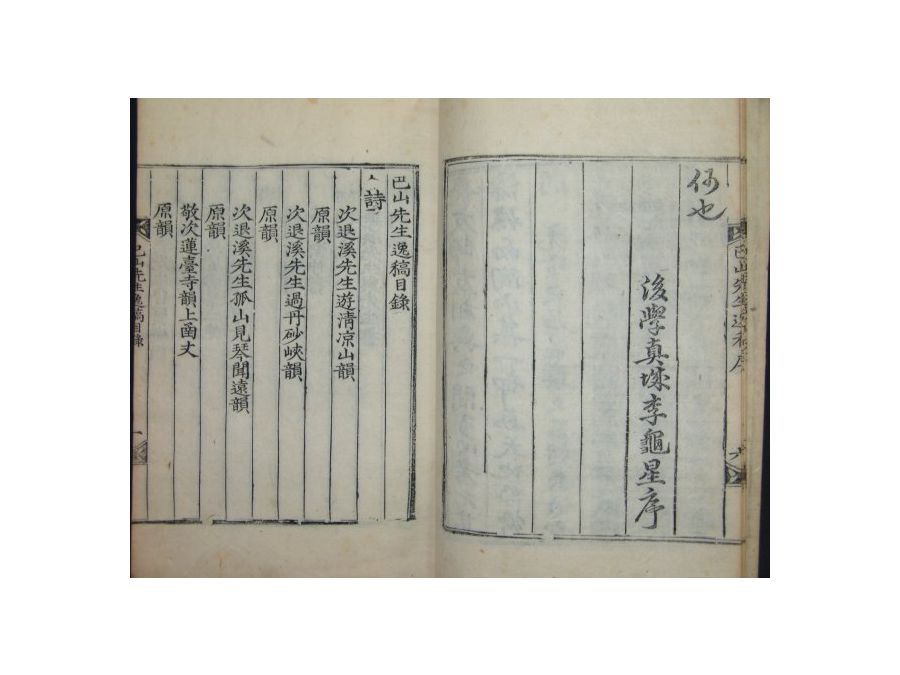 巴山先生逸稿序
六
何也
後學真城李龜星序
巴山先生逸稿目錄
詩
次退溪先生遊清凉山韻
原韻
次退溪先生過丹砂峽韻
原韻
次退溪先生孤山見琴聞遠韻
原韻
敬次蓮臺寺韻上丈
原韻
巴山先生逸稿目錄
一